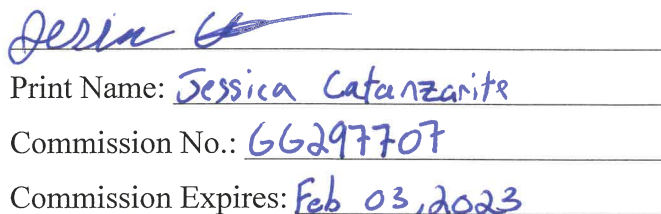 Print Name: Jessica Catanzarite
Commission No.: GG297707
Commission Expires: Feb 03, 2023